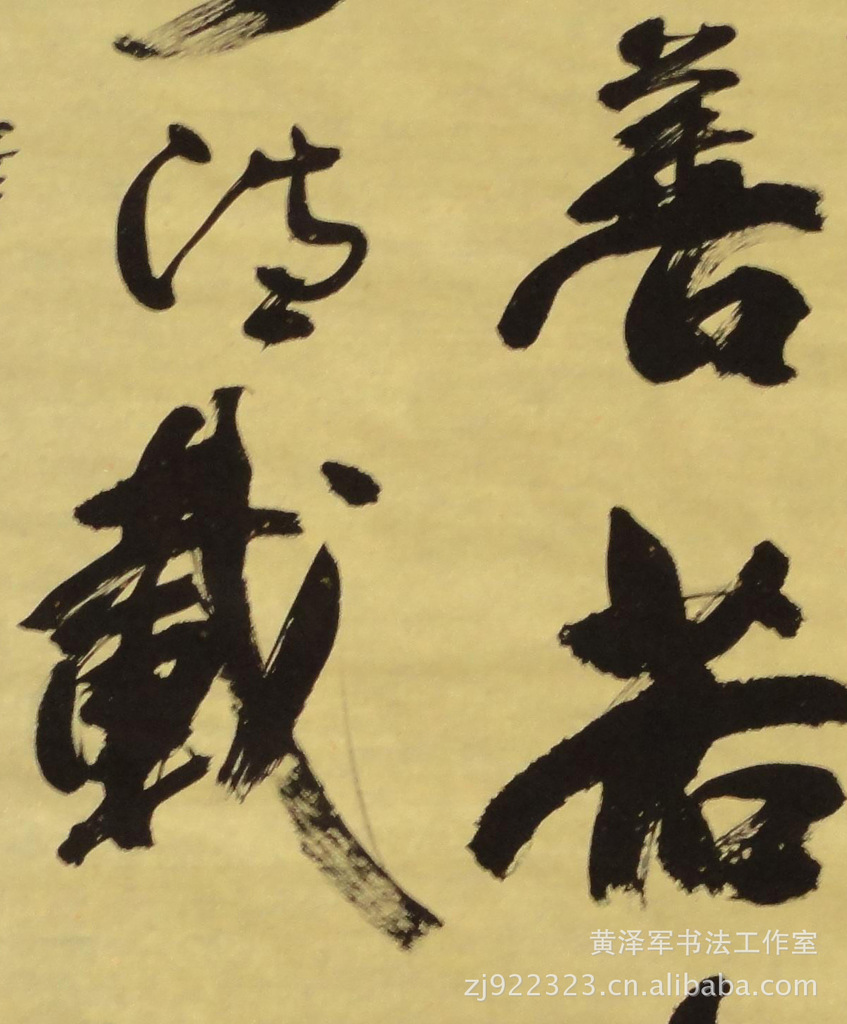 善若
德載
黄泽军书法工作室
zj922323.cn.alibaba.com